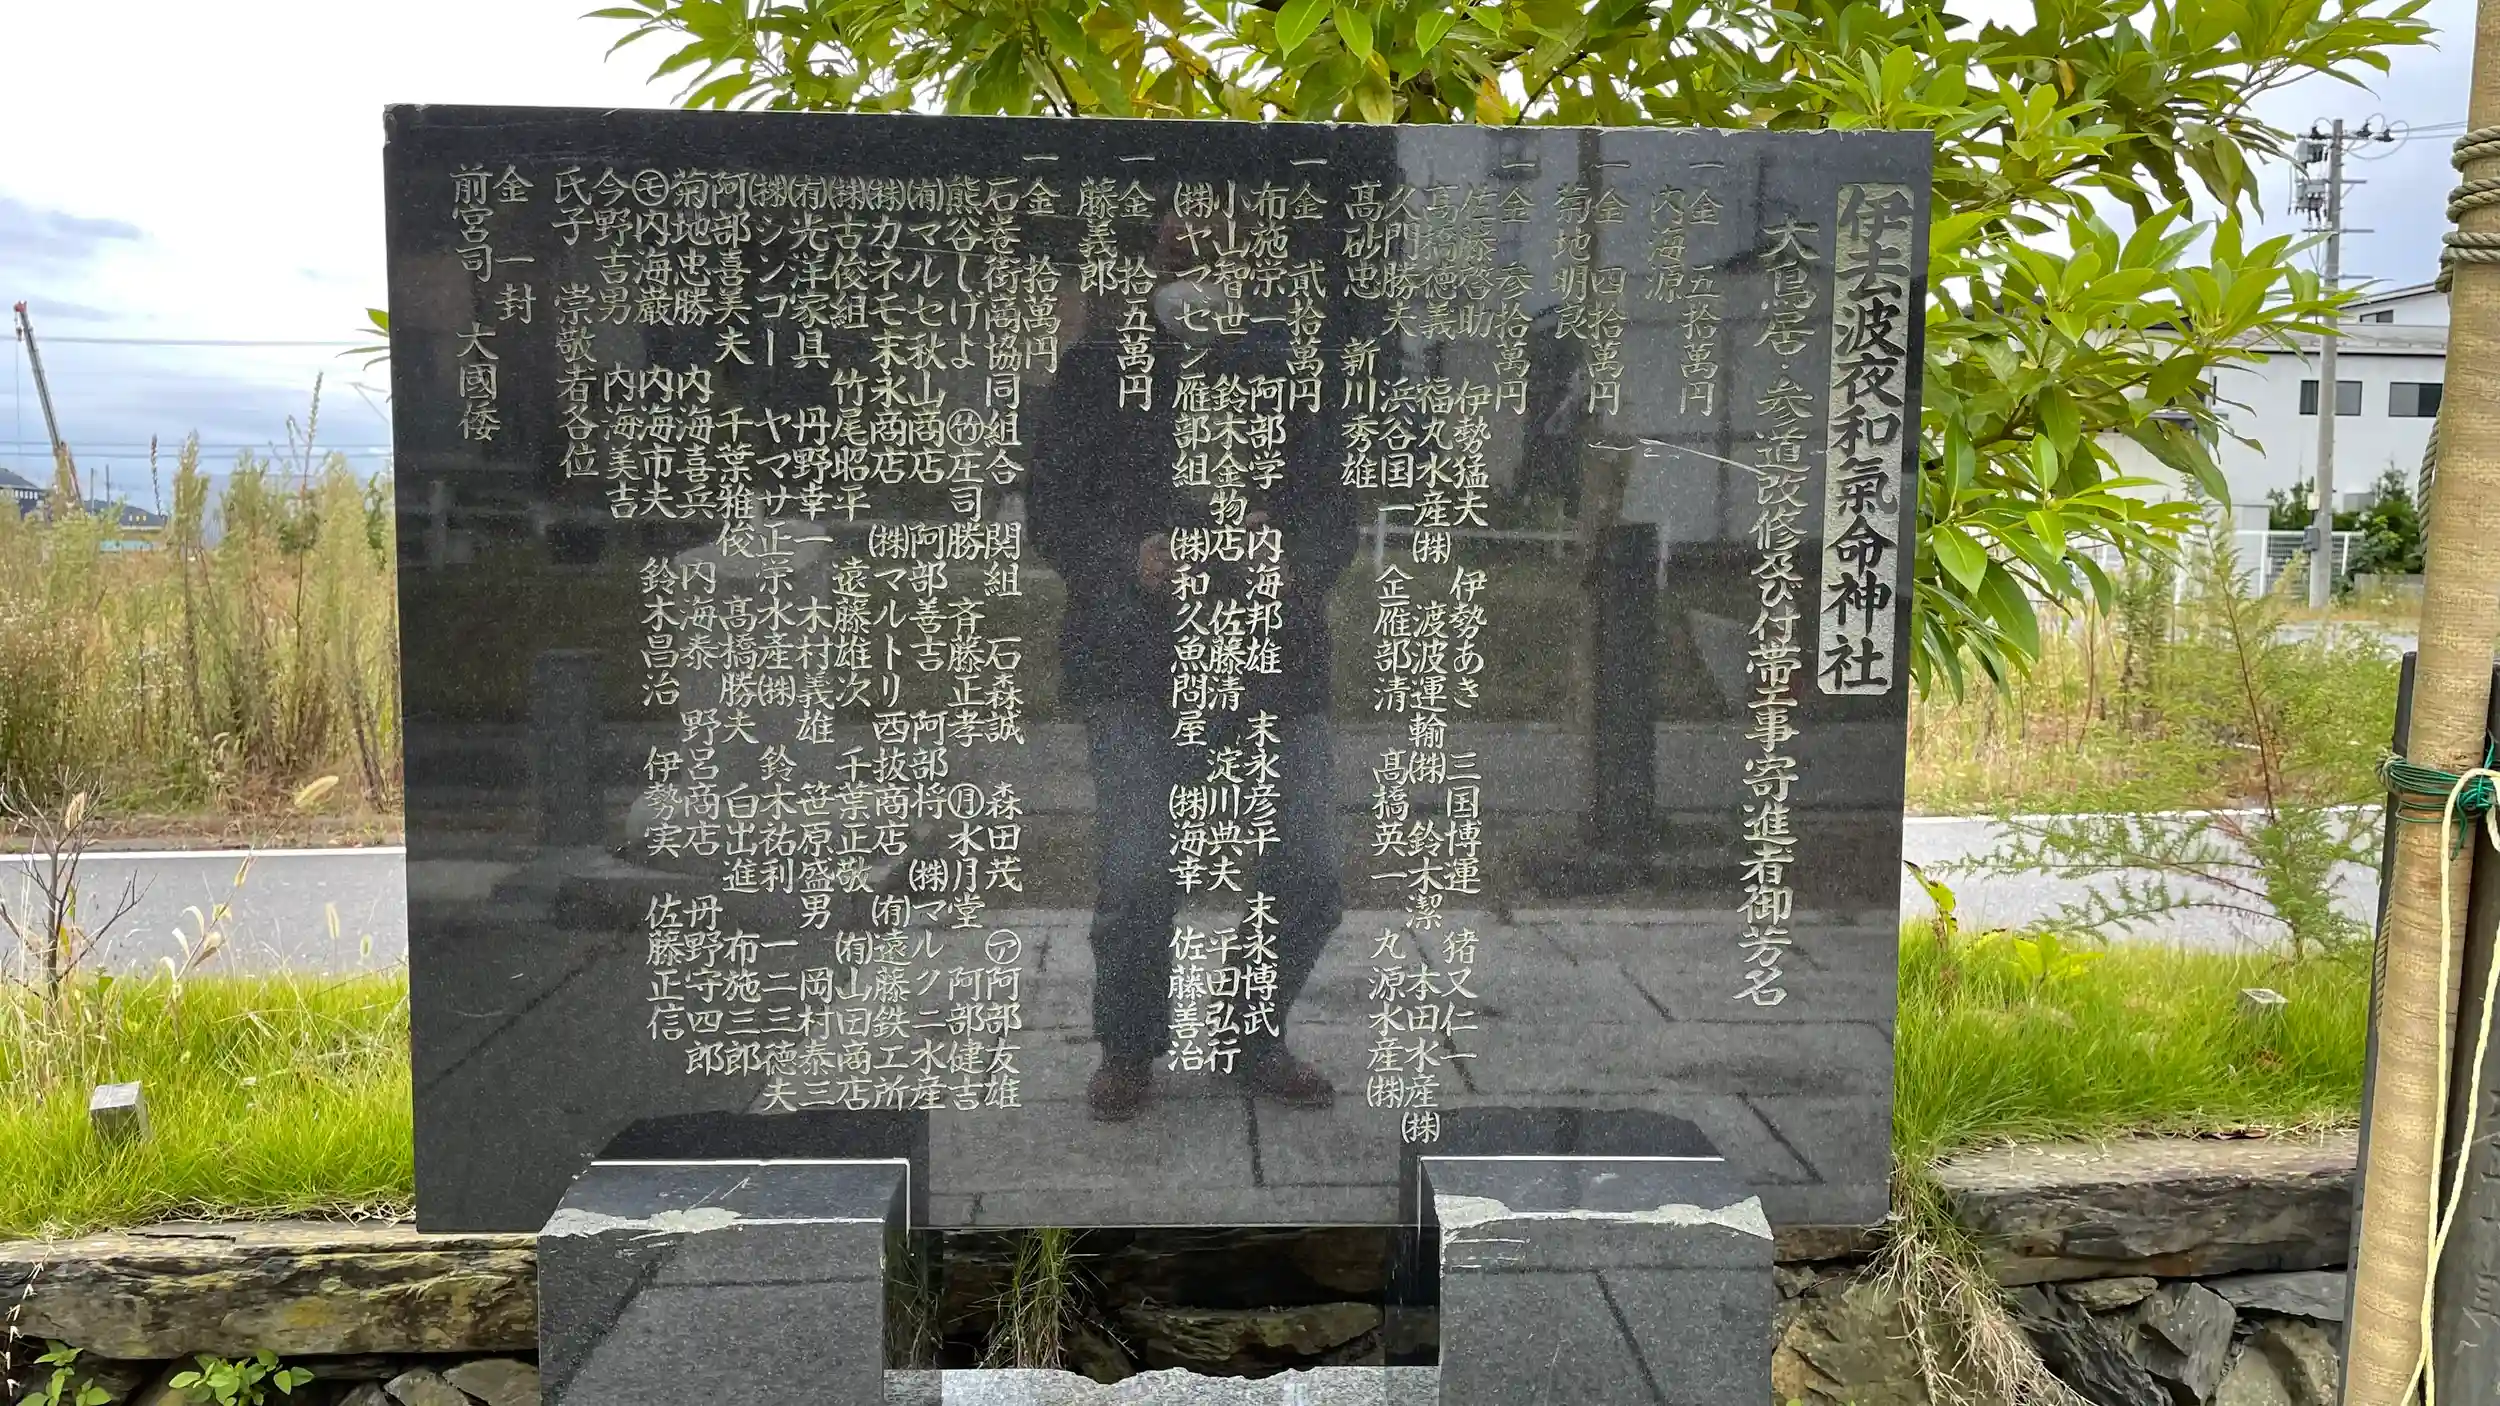 伊去波夜和氣命神社
大鳥居・参道改修及び付帯工事寄進者御芳名
一金 五拾萬円
内海源
一金 四拾萬円
菊地明良
一金 参拾萬円
佐藤啓助 伊勢猛夫 伊勢あき 三国博運 猪又仁一
高橋徳義 福丸水産㈱ 渡波運輸㈱ 鈴木潔 本田水産㈱
久門勝夫 浜谷国一 企雁部清 髙橋英一 丸源水産㈱
髙砂忠 新川秀雄
一金 貳拾萬円
布施栄一 阿部学 内海邦雄 末永彦平 末永博武
小山智世 鈴木金物店 佐藤清 淀川典夫 平田弘行
㈱ヤマゼン雁部組 ㈱和久魚問屋 ㈱海幸 佐藤善治
一金 拾五萬円
藤義郎
一金 拾萬円
石巻街商協同組合 関組 石森誠 森田茂 ㋐阿部友雄
熊谷しげよ ㊥庄司勝 斉藤正孝 ㊊水月堂 阿部健吉
㈲マルセ秋山商店 阿部善吉 阿部将 ㈱マルクニ水産
㈱カネモ末永商店 ㈱マルトリ 西抜商店 ㈲遠藤鉄工所
㈱古俊組 竹尾昭平 遠藤雄次 千葉正敬 ㈲山田商店
㈲光洋家具 丹野幸一 木村義雄 笹原盛男 岡村泰三
㈱シンコー ヤマサ正栄水産㈱ 鈴木祐利 一二三徳夫
阿部喜美夫 千葉雅俊 髙橋勝夫 白出進 布施三郎
菊地忠勝 内海喜兵 内海泰 野呂商店 丹野守四郎
㋲内海厳 内海市夫 鈴木昌治 伊勢実 佐藤正信
今野吉男 内海美吉
氏子 崇敬者各位
金一封
前宮司 大國倭